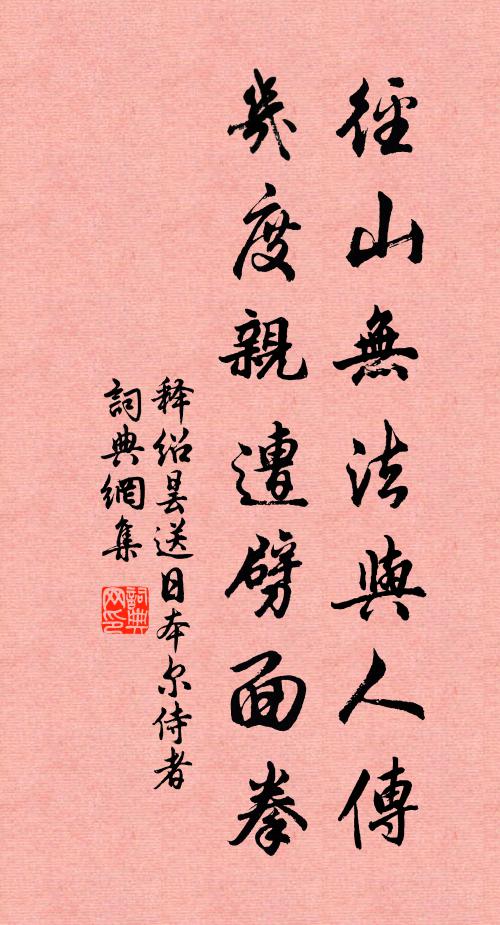 徑山無法與人傳
幾度親遭劈面拳
释绍曇送日本尔侍者
詞典網集
詞典网印